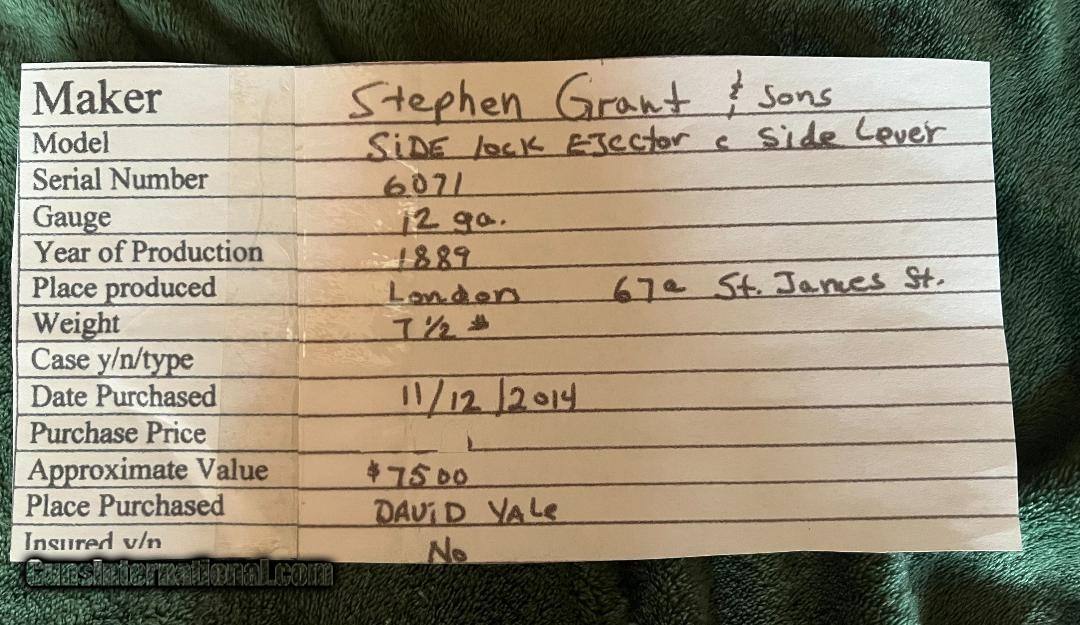 Maker Stephen Grant & Sons
Model SiDE lock EJector c Side Lever
Serial Number 6071
Gauge 12 ga.
Year of Production 1889
Place produced London 67a St. James St.
Weight 7 1/2 #
Case y/n/type
Date Purchased 11/12/2014
Purchase Price
Approximate Value $7500
Place Purchased DAViD YALe
Insured y/n No
GunsInternational.com